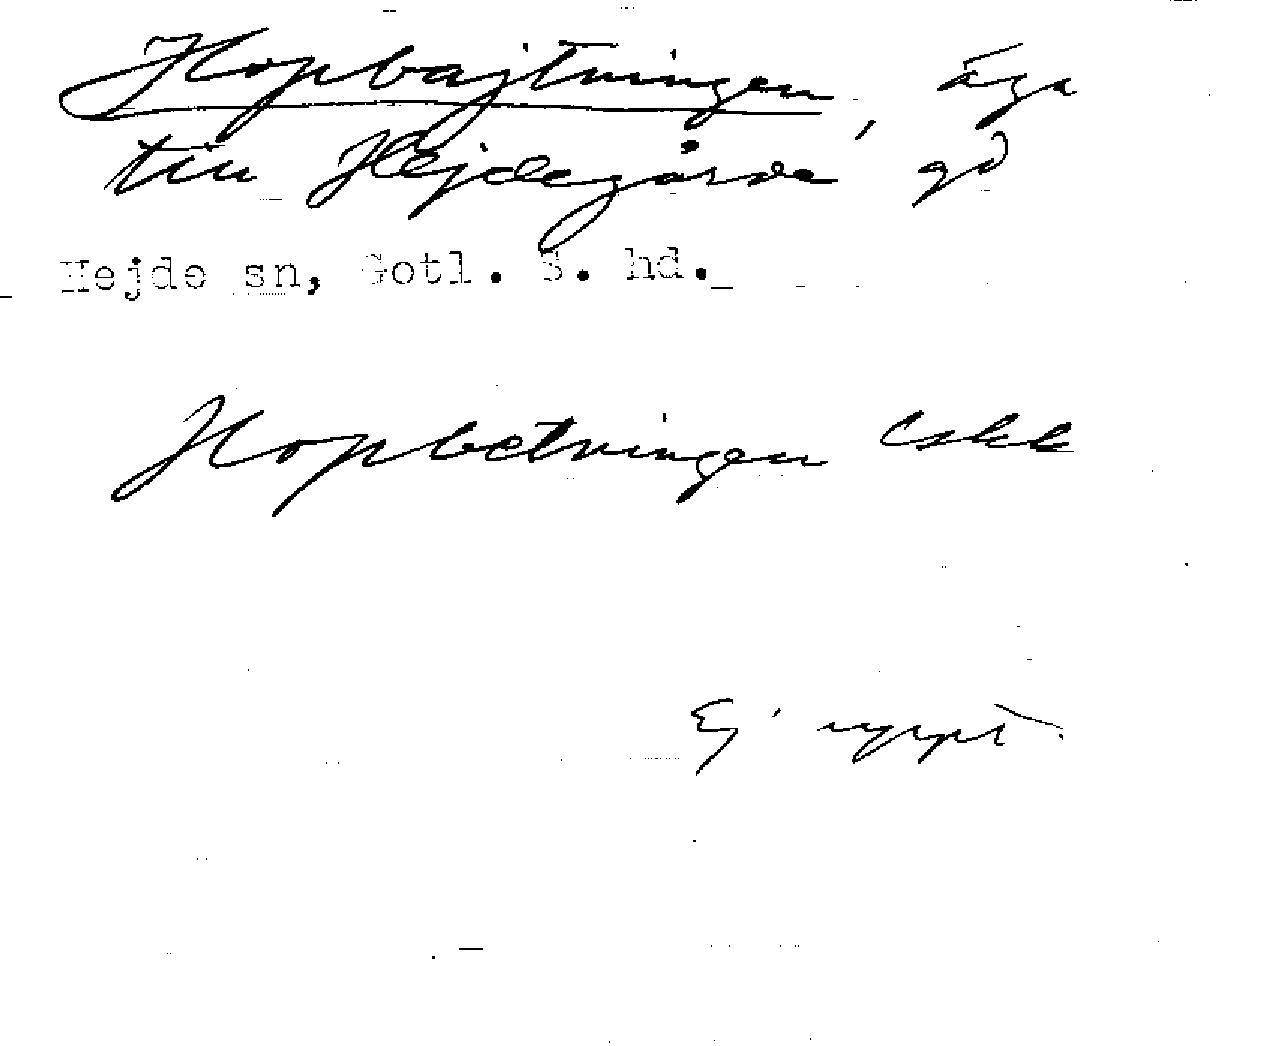 Hopbajtningen, äga
till Hejdegårda, gd
Hejde sn, Gotl. S. hd.
Hopbetningen Eskk
Ej uppt.